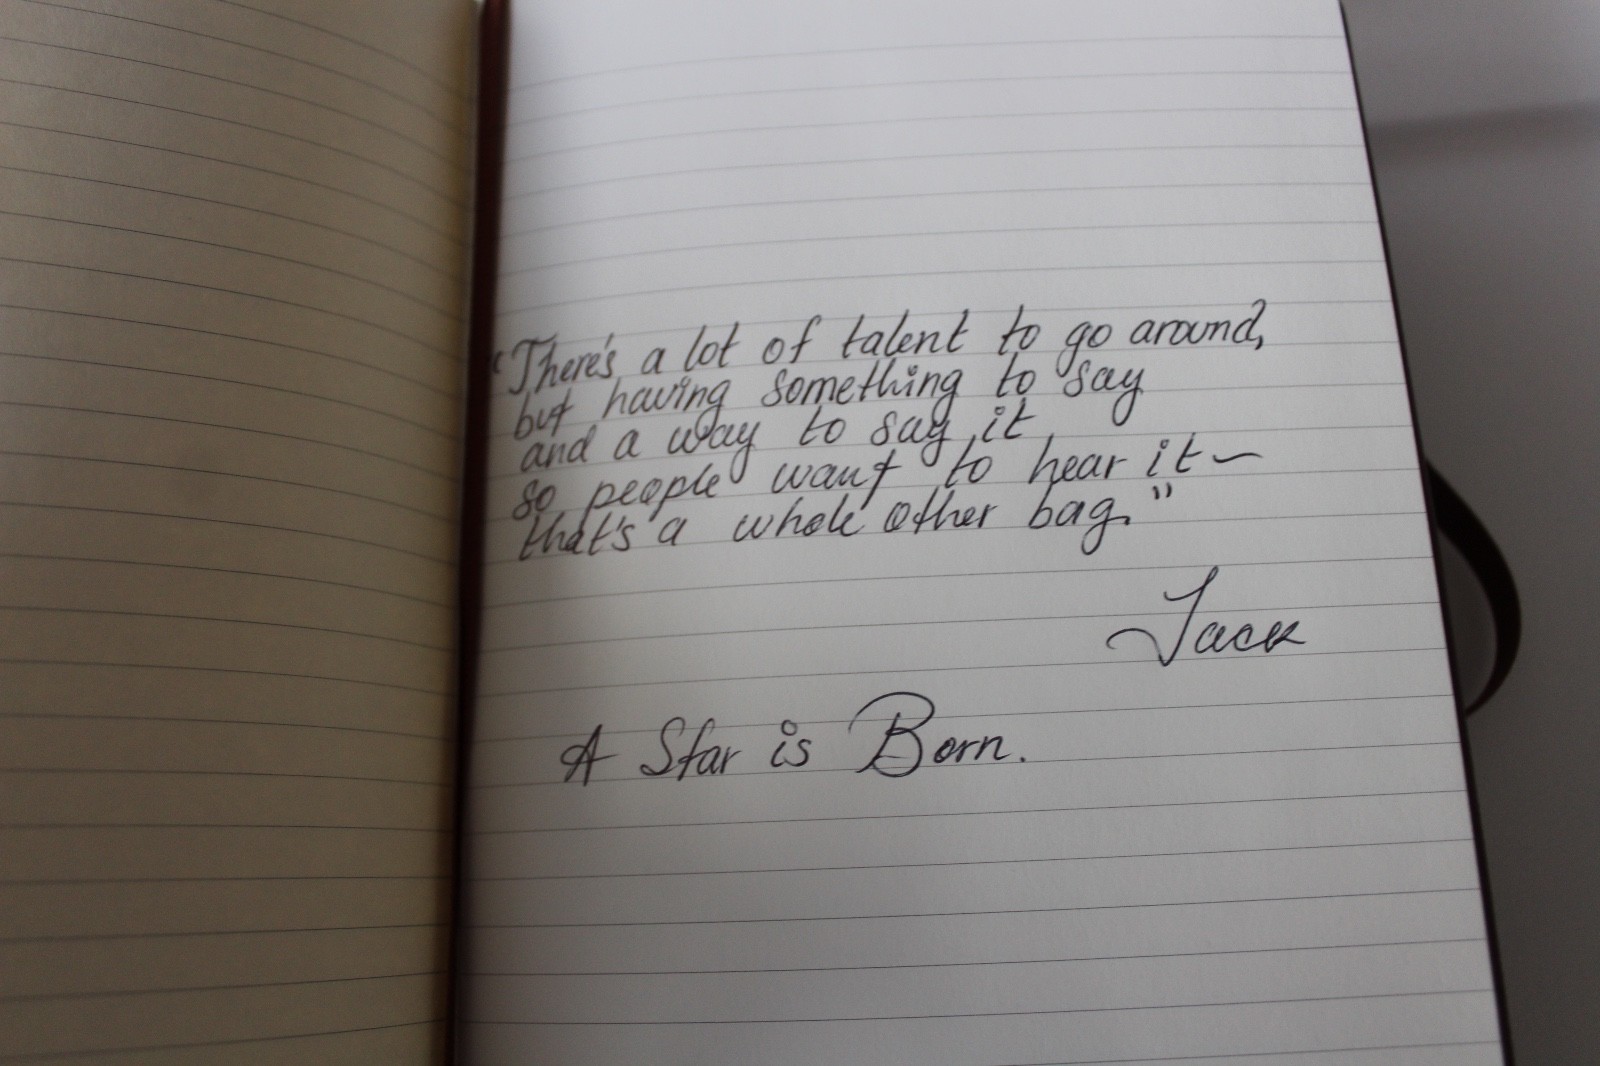 "There's a lot of talent to go around,
but having something to say
and a way to say it
so people want to hear it –
that's a whole other bag."
Jack
A Star is Born.